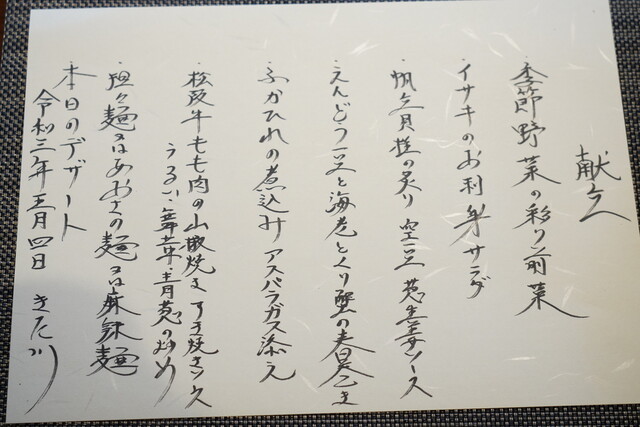 献立
・季節野菜の彩り前菜
・イサキのお刺身サラダ
・帆立貝柱の炙り 空豆 葱生姜ソース
・えんどう豆と海老とずり蟹の春巻き
・ふかひれの煮込み アスパラガス添え
・松阪牛もも肉の山椒焼き すき焼きソース
うるい・舞茸・青葱の炒め
・担々麺又はあおさの麺又は麻辣麺
・本日のデザート
令和三年五月四日 きた川